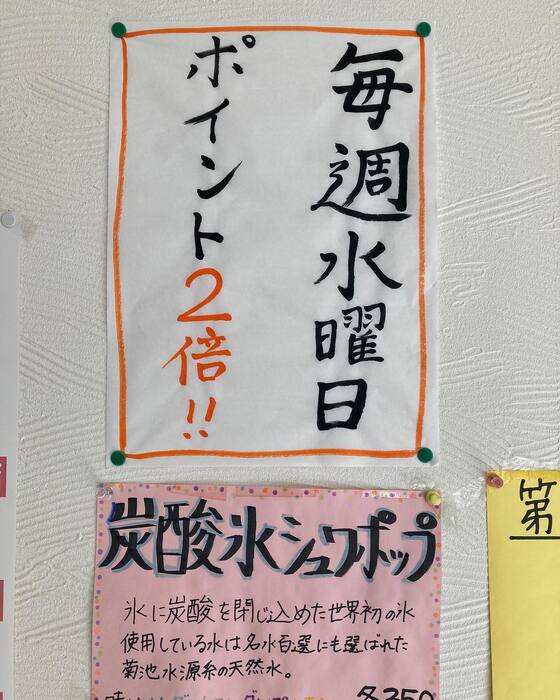 毎週水曜日
ポイント2倍!!
炭酸氷シュワポップ
氷に炭酸を閉じ込めた世界初の氷
使用している水は名水百選にも選ばれた
菊池水源系の天然水。
各350
第